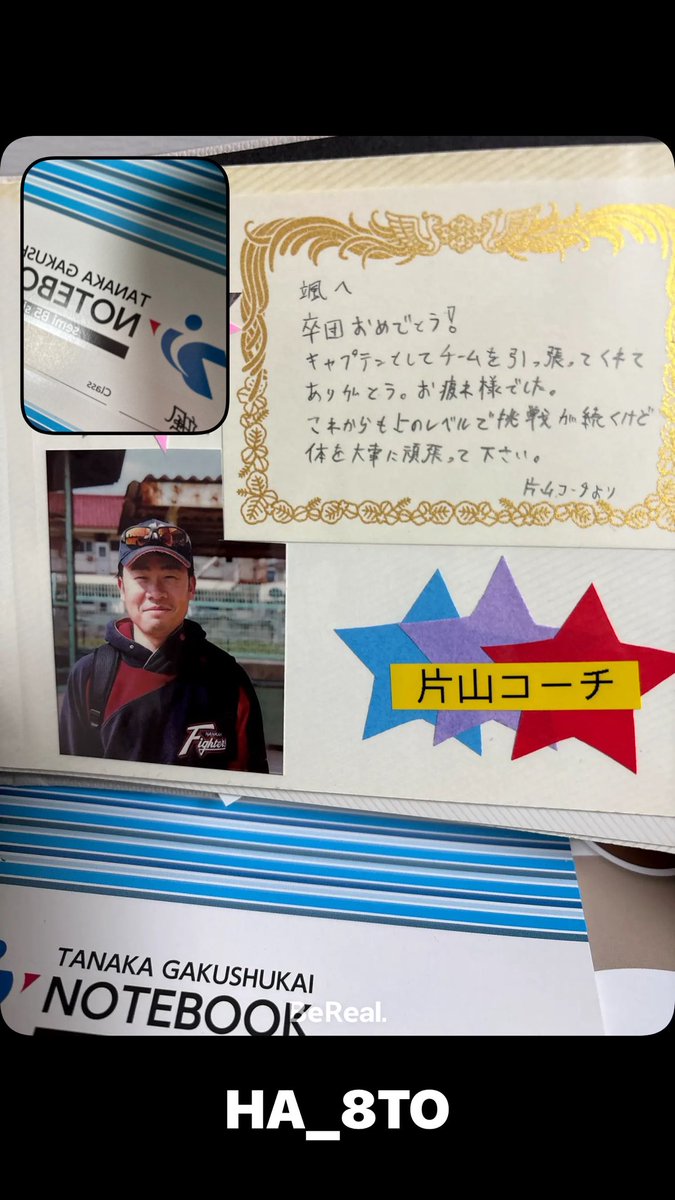 TANAKA GAKUSH
NOTEBO
semi B5 s
Class
颯
颯へ
卒団おめでとう!
キャプテンとしてチームを引っ張ってくれて
ありがとう。お疲れ様でした。
これからも上のレベルで挑戦が続くけど
体を大事に頑張って下さい。
片山コーチより
Fighters
片山コーチ
TANAKA GAKUSHUKAI
NOTEBOOK
BeReal.
HA_8TO